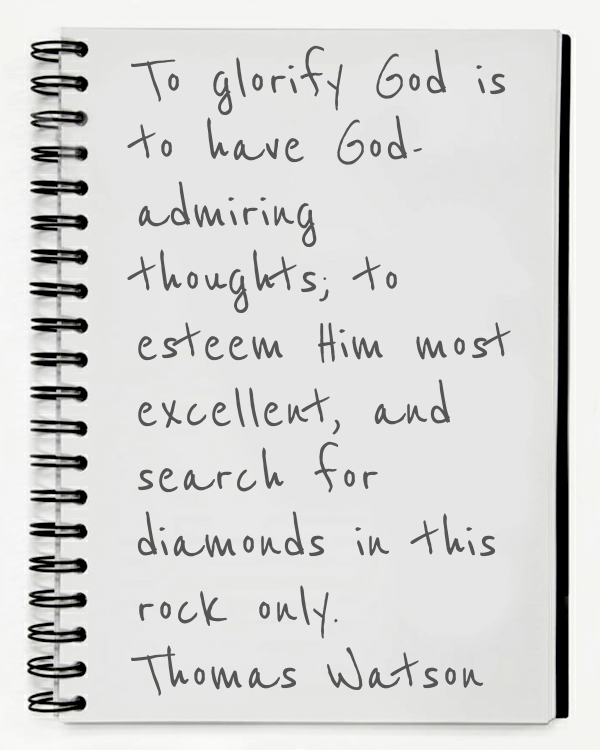 To glorify God is
to have God-
admiring
thoughts; to
esteem Him most
excellent, and
search for
diamonds in this
rock only.
Thomas Watson